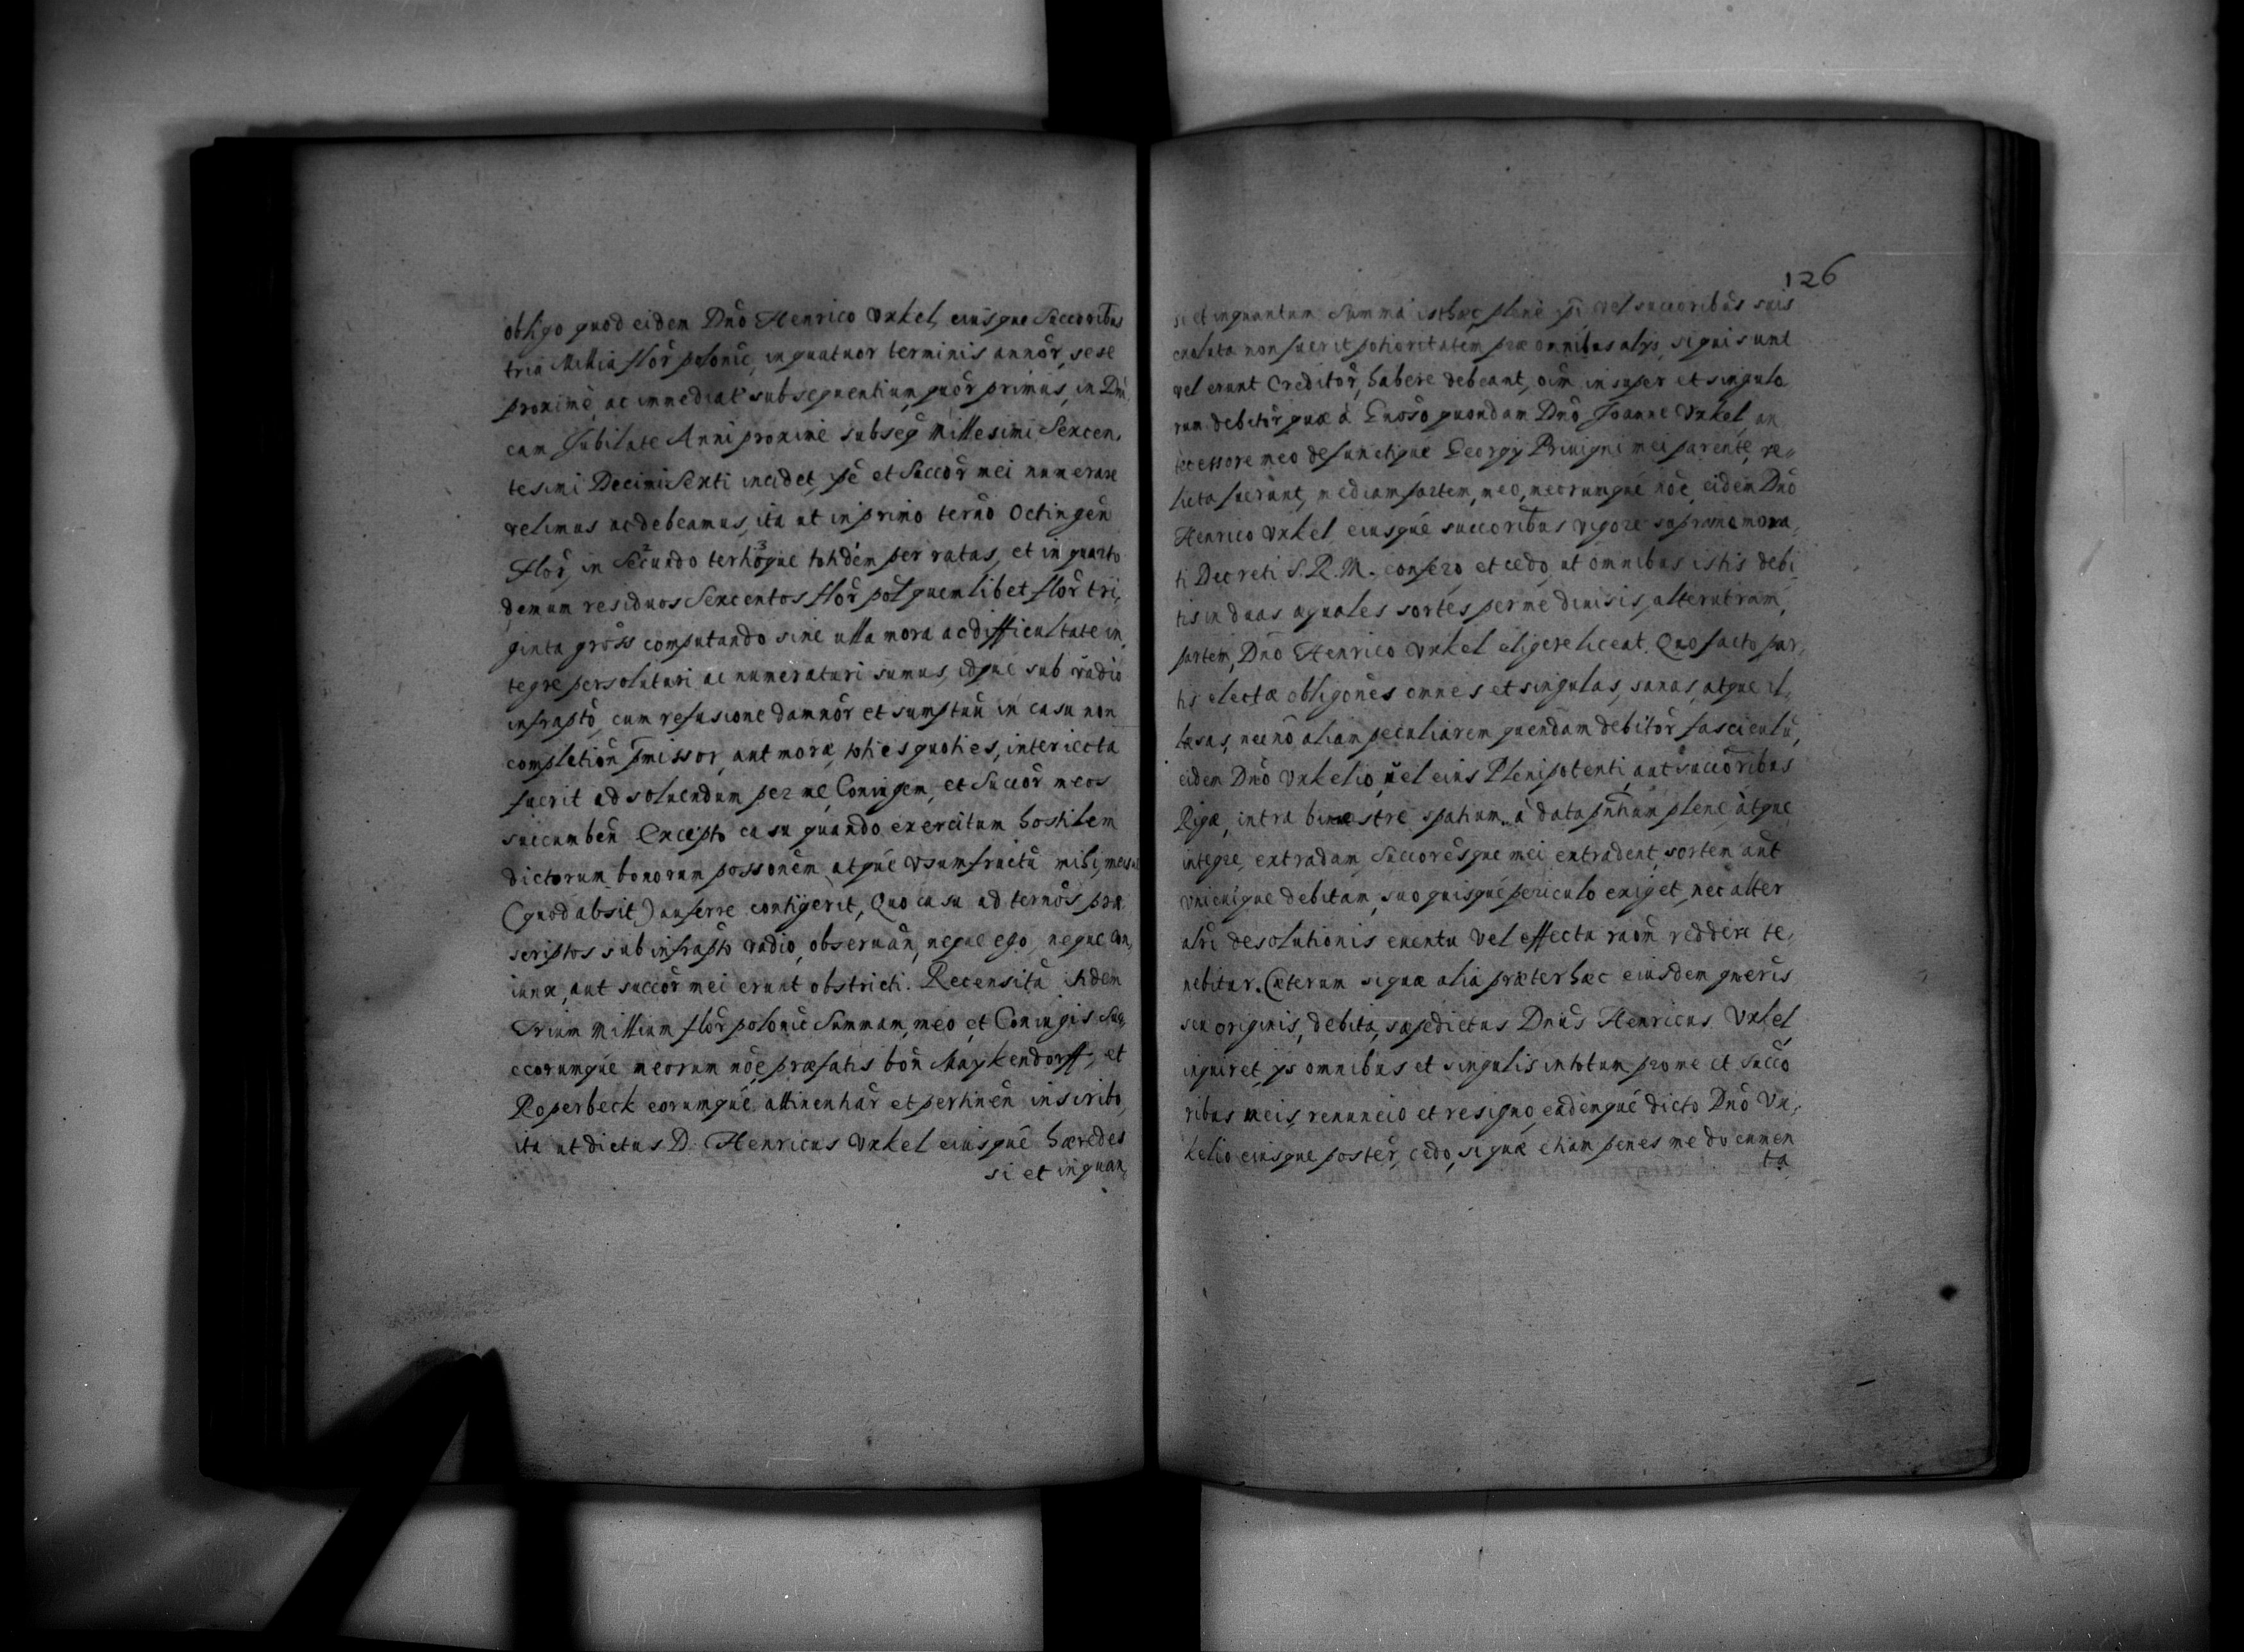 obligo quod eidem Dno Henrico Vnkel, eiusque Succoribus
tria Millia flor polonic, in quatuor terminis annor, sese
proxime, ac immediat subsequentium, quor primus, in Dni,
cam Jubilate Anni proxime subseq Millesimi Sexcen,
tesimi Decimi Sexti incidet, p̄e et Succor mei numerare
velimus ac debeamus, ita ut in primo termo Octingen
Flor, in Secundo tertioque totidem per ratas, et in quarto
demum residuos Sexcentos flor pol quemlibet flor tri,
ginta gross computando sine ulla mora ac difficultate in,
tegre persoluturi ac numeraturi sumus, idque sub vadio
infrapto, cum refusione damnor et sumptuu in casu non
completion p̄missor, aut moræ, toties quoties, interiecta
fuerit ad soluendum per me, Coniugem, et Succor meos
succumben Excepto casu quando exercitum hostilem
dictorum bonorum possonem atque Vsumfructu mihi, meisq
(quod absit) auferre contigerit, Quo casu ad termos præ
scriptos sub infrapto vadio, obseruan, neque ego, neque Con,
iunx, aut succor mei erunt obstricti. Recensita itidem
Trium Millium flor polonic Summam, meo, et Coniugis Suc,
ecorumque meorum noe, præfatis bon Maykendorff, et
Roperbeck eorumque attinentiar et pertinen inscribo,
ita ut dictus D. Henricus Vnkel eiusque hæredes
si et inquan,
126
si et inquantum Summa isthæc plene p̄i vel succoribus suis
exoluta non fuerit potioritatem præ omnibus alys, si qui sunt
vel erunt Creditor, habere debeant, oim insuper et singulo
rum debitor quæ à Gnoso quondam Dno Joanne Vnkel, an
tecessore meo defunctique Georgy Priuigni mei parente, re,,
licta fuerunt, mediam partem, meo, meorumque noe, eidem Dno
Henrico Vnkel eiusque succoribus vigore supramemora,
ti Decreti S. R. M. confero, et cedo, ut omnibus istis debi
tis in duas æquales sortes per me diuisis, alterutram,
partem, Dno Henrico Vnkel eligere liceat. Quo facto par,
tis electæ obligones omnes et singulas, sanas, atque il,
læsas, necno aliam peculiarem quendam debitor fasciculu,
eidem Dno Vnkelio, uel eius Plenipotenti, aut succoribus
Rigæ, intra bimæstre spatium à data pntium plene atque
integre, extradam Succoresque mei extradent, sortem aut
vnicuique debitam, suo quisque periculo exiget, nec alter
alri de solutionis euentu vel effectu raon reddere te,
nebitur. Cæterum si quæ alia præter hæc eiusdem gneris
seu originis, debita, sæpedictus Dnus Henricus Vnkel
inquiret, ys omnibus et singulis in totum pro me et Succo
ribus meis, renuncio et resigno, eademque dicto Dno Vn,
kelio eiusque poster, cedo, si quæ etiam penes me documen
ta